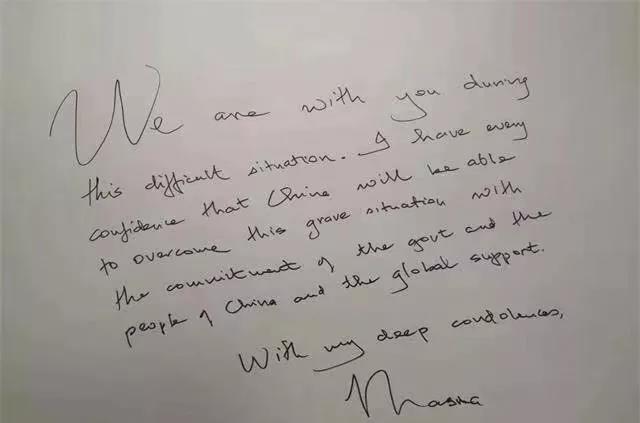 We are with you during
this difficult situation. I have every
confidence that China will be able
to overcome this grave situation with
the commitment of the govt and the
people of China and the global support.
With my deep condolences,